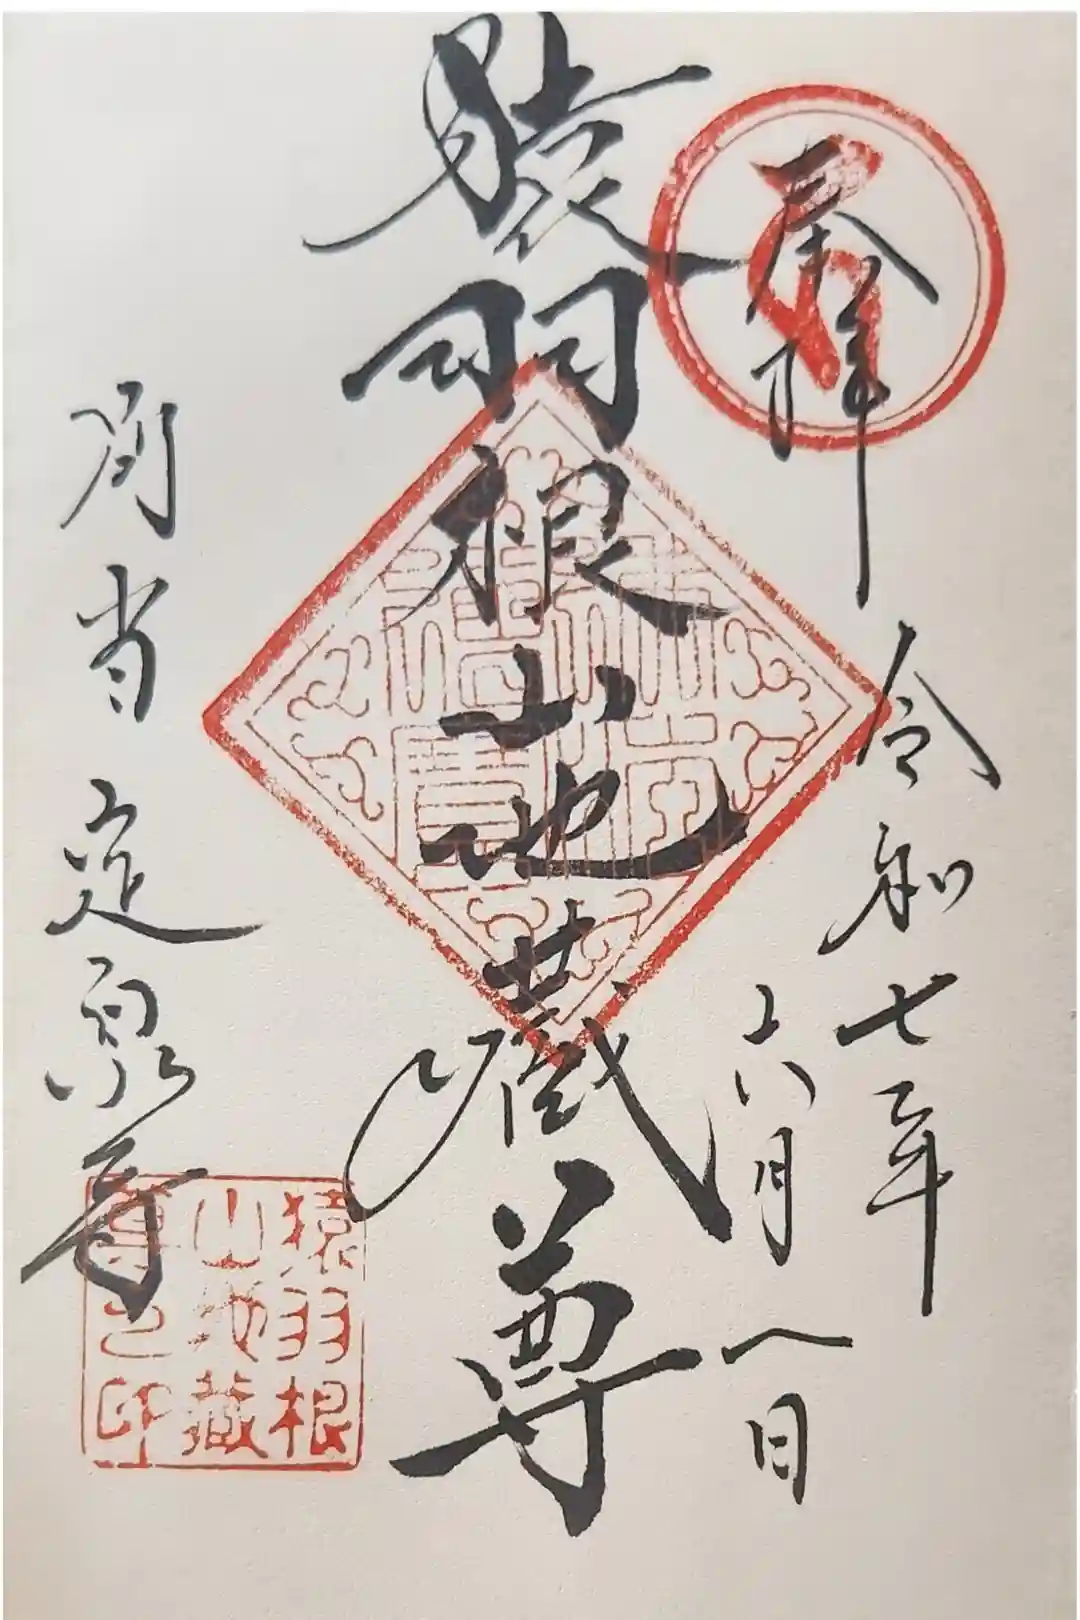 奉拝
令和七年
六月八日
猿羽根山地蔵尊
別当 定泉寺
猿羽根
山地藏
尊之印